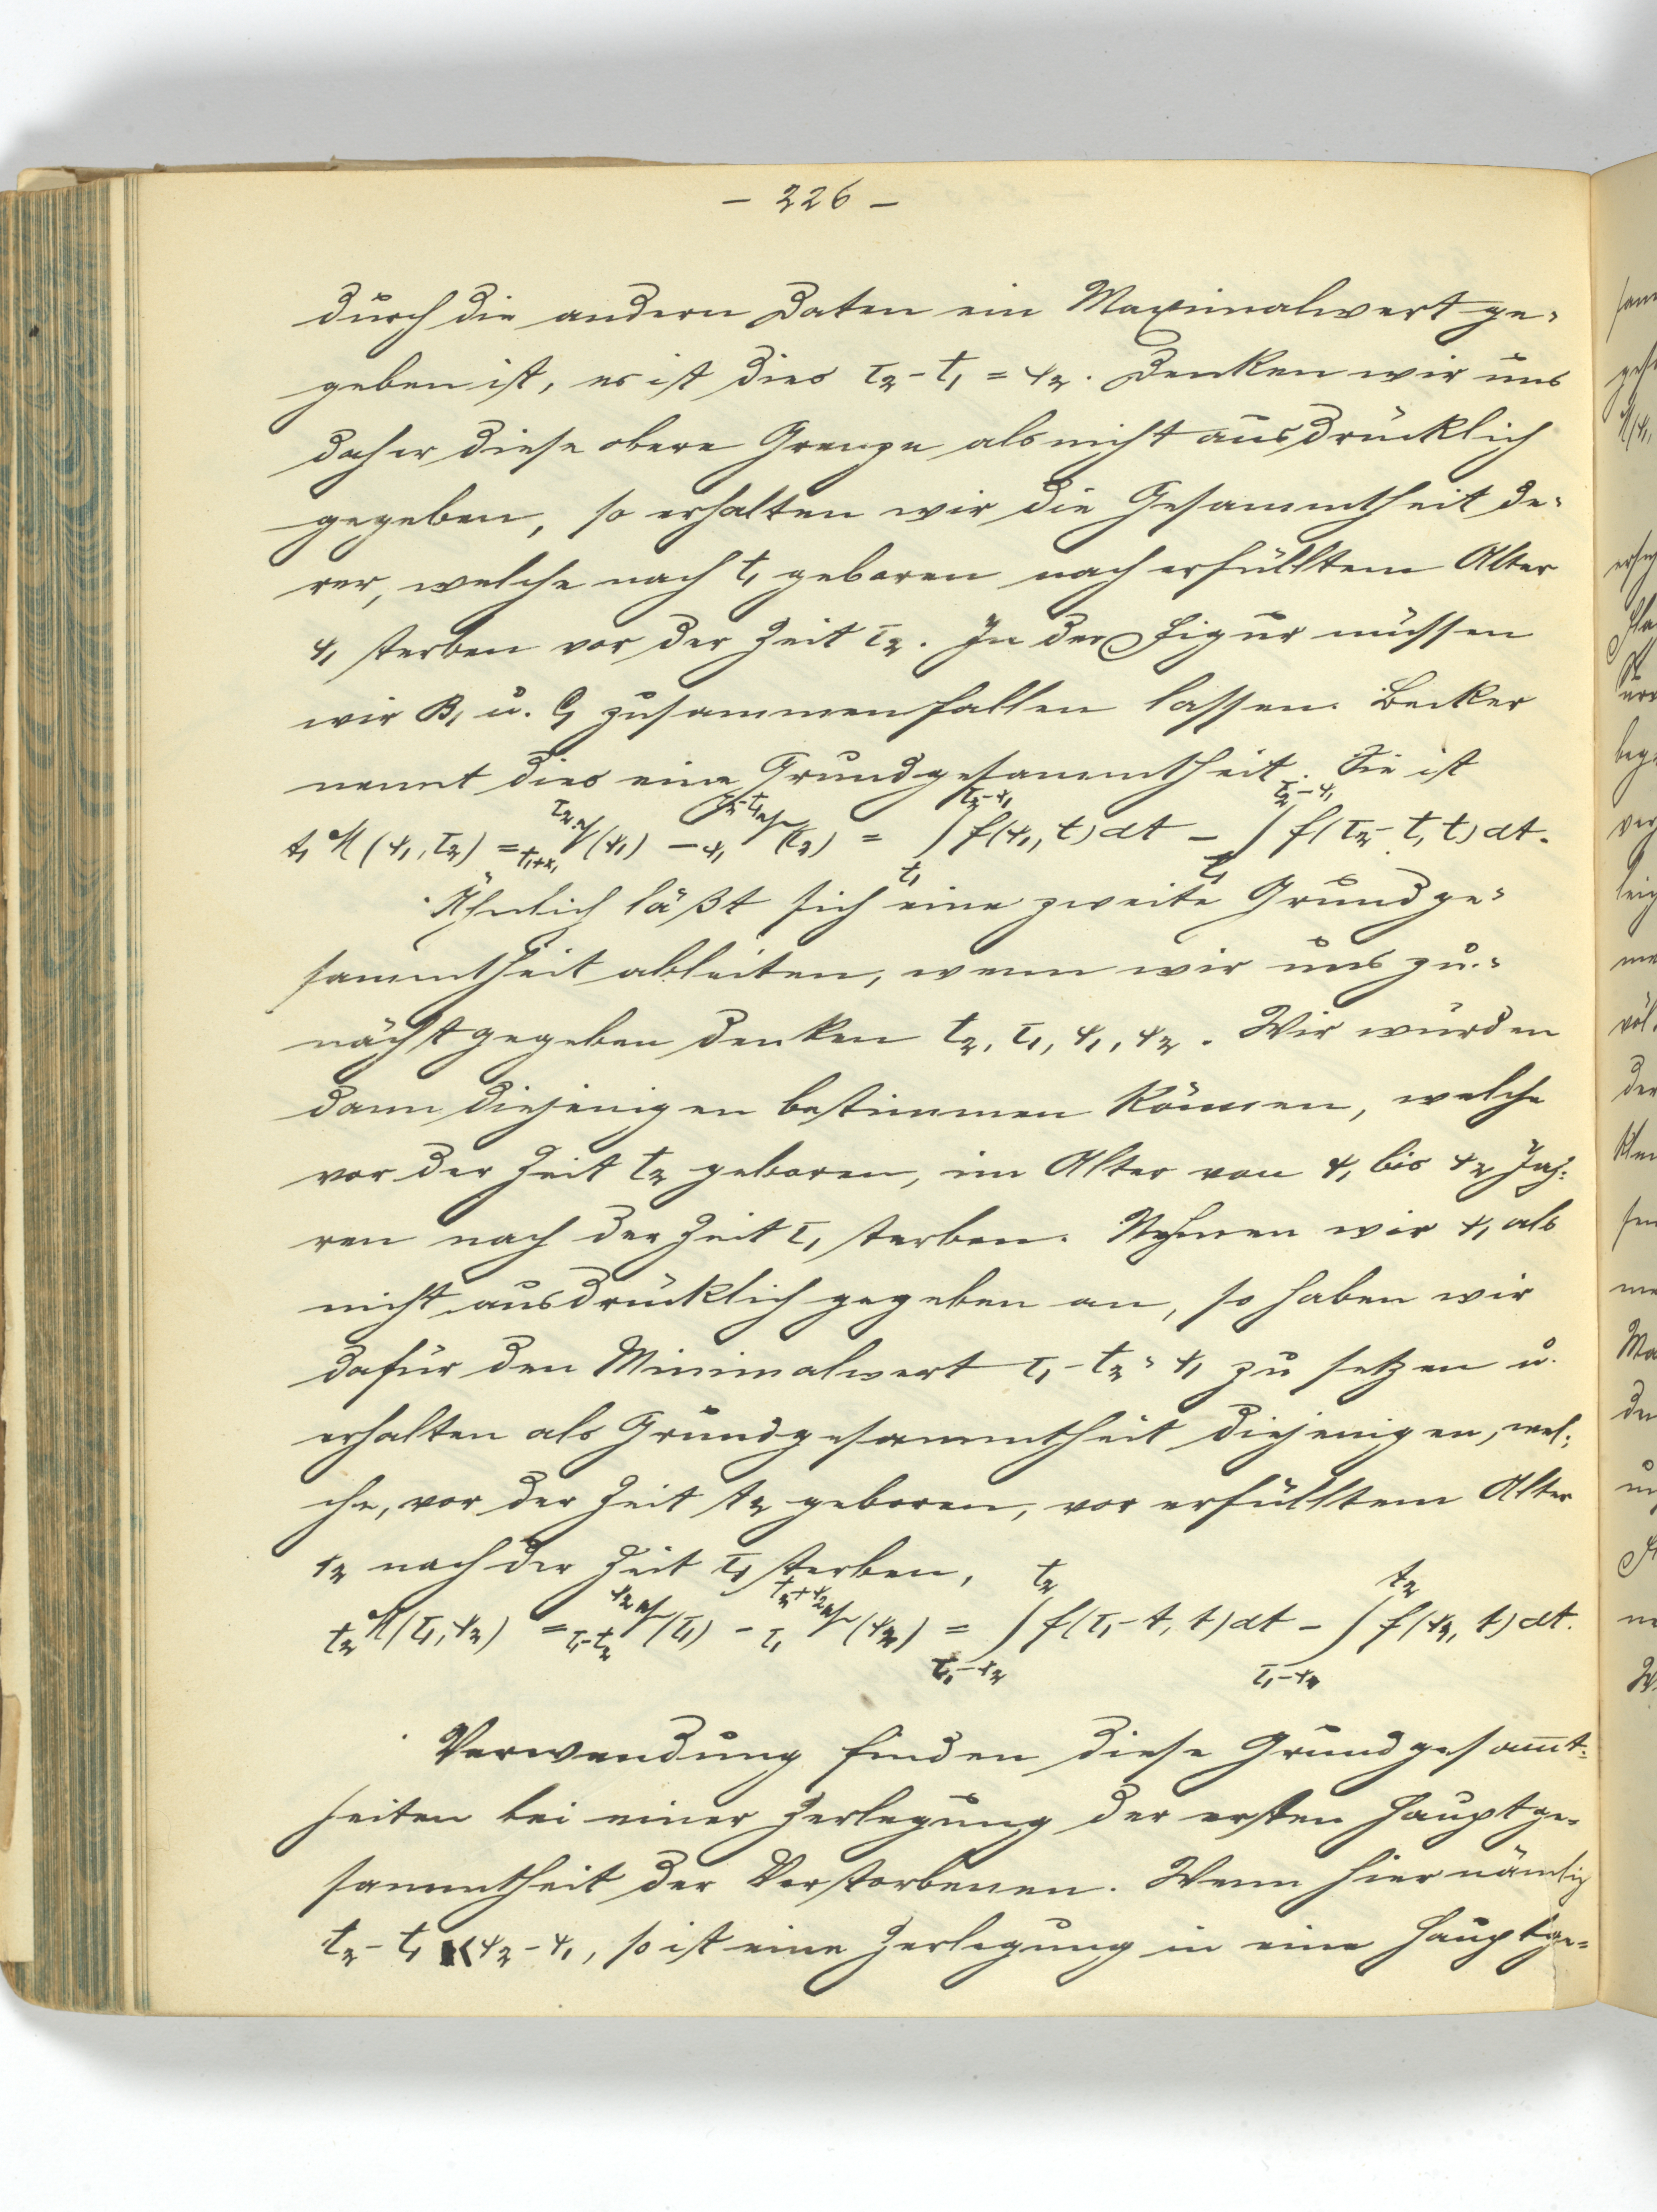 – 226 –
durch die andern Daten ein Maximalwert ge-
geben ist, es ist dies τ₂ - t₁ = x₂. Denken wir uns
daher diese obere Grenze als nicht ausdrücklich
gegeben, so erhalten wir die Gesammtheit de-
rer, welche nach t₁ geboren nach erfülltem Alter
x₁ sterben vor der Zeit τ₂. In der Figur müssen
wir B₁ u. C₁ zusammenfallen lassen. Becker
nennt dies eine Grundgesammtheit. Sie ist
t₁ M (x₁, τ₂) = ∫_{t₁}^{τ₂-x₁} f(x₁, t) dt - ∫_{t₁}^{τ₂-x₁} f(τ₂ - t, t) dt.
Ähnlich läßt sich eine zweite Grundge-
sammtheit ableiten, wenn wir uns zu-
nächst gegeben denken t₂, τ₁, x₁, x₂. Wir würden
dann diejenigen bestimmen können, welche
vor der Zeit t₂ geboren, im Alter von x₁ bis x₂ Jah-
ren nach der Zeit τ₁ sterben. Nehmen wir x₁ als
nicht ausdrücklich gegeben an, so haben wir
dafür den Minimalwert τ₁ - t₂ = x₁ zu setzen u.
erhalten als Grundgesammtheit diejenigen, wel-
che, vor der Zeit t₂ geboren, vor erfülltem Alter
x₂ nach der Zeit τ₁ sterben,
t₂ M (τ₁, x₂) = ∫_{τ₁-x₂}^{t₂} f(τ₁ - t, t) dt - ∫_{τ₁-x₂}^{t₂} f(x₂, t) dt.
Verwendung finden diese Grundgesammt-
heiten bei einer Zerlegung der ersten Hauptge-
sammtheit der Verstorbenen. Wenn hier nämlich
t₂ - t₁ < x₂ - x₁, so ist eine Zerlegung in eine Hauptge-